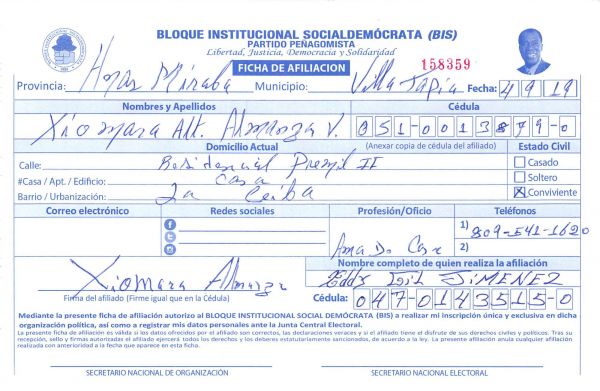 BLOQUE INSTITUCIONAL SOCIALDEMÓCRATA (BIS)
PARTIDO PEÑAGOMISTA
Libertad, Justicia, Democracia y Solidaridad
FICHA DE AFILIACION
158359
Provincia: Hnas Miraba Municipio: Villa Tapia Fecha: 4 9 19
Nombres y Apellidos Cédula
Xiomara Alt. Almanza V. 051-0013879-0
Domicilio Actual (Anexar copia de cédula del afiliado) Estado Civil
Calle: Residencial Premil II Casado
#Casa / Apt. / Edificio: Casa Soltero
Barrio / Urbanización: La Ceiba X Conviviente
Correo electrónico Redes sociales Profesión/Oficio Teléfonos
1) 809-541-1620
Ama Do Casa 2)
Nombre completo de quien realiza la afiliación
Xiomara Almanza Eddy Gil JIMENEZ
Firma del afiliado (Firme igual que en la Cédula) Cédula: 047-0143515-0
Mediante la presente ficha de afiliación autorizo al BLOQUE INSTITUCIONAL SOCIAL DEMÓCRATA (BIS) a realizar mi inscripción única y exclusiva en dicha
organización política, así como a registrar mis datos personales ante la Junta Central Electoral.
La presente ficha de afiliación es válida si los datos ofrecidos por el afiliado son correctos, las declaraciones veraces y si el afiliado tiene el disfrute de sus derechos civiles y políticos. Tras su
recepción, sello y firmas autorizadas el afiliado ejercerá todos los derechos y los deberes estatutariamente sancionados, de acuerdo a la ley. La presente afiliación anula cualquier afiliación
realizada con anterioridad a la fecha que aparece en esta ficha.
SECRETARIO NACIONAL DE ORGANIZACIÓN SECRETARIO NACIONAL ELECTORAL